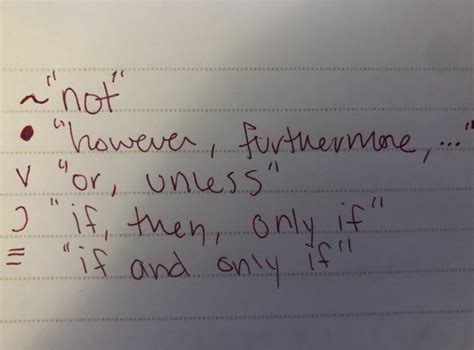 ~ "not"
• "however, furthermore, ..."
∨ "or, unless"
⊃ "if, then, only if"
≡ "if and only if"